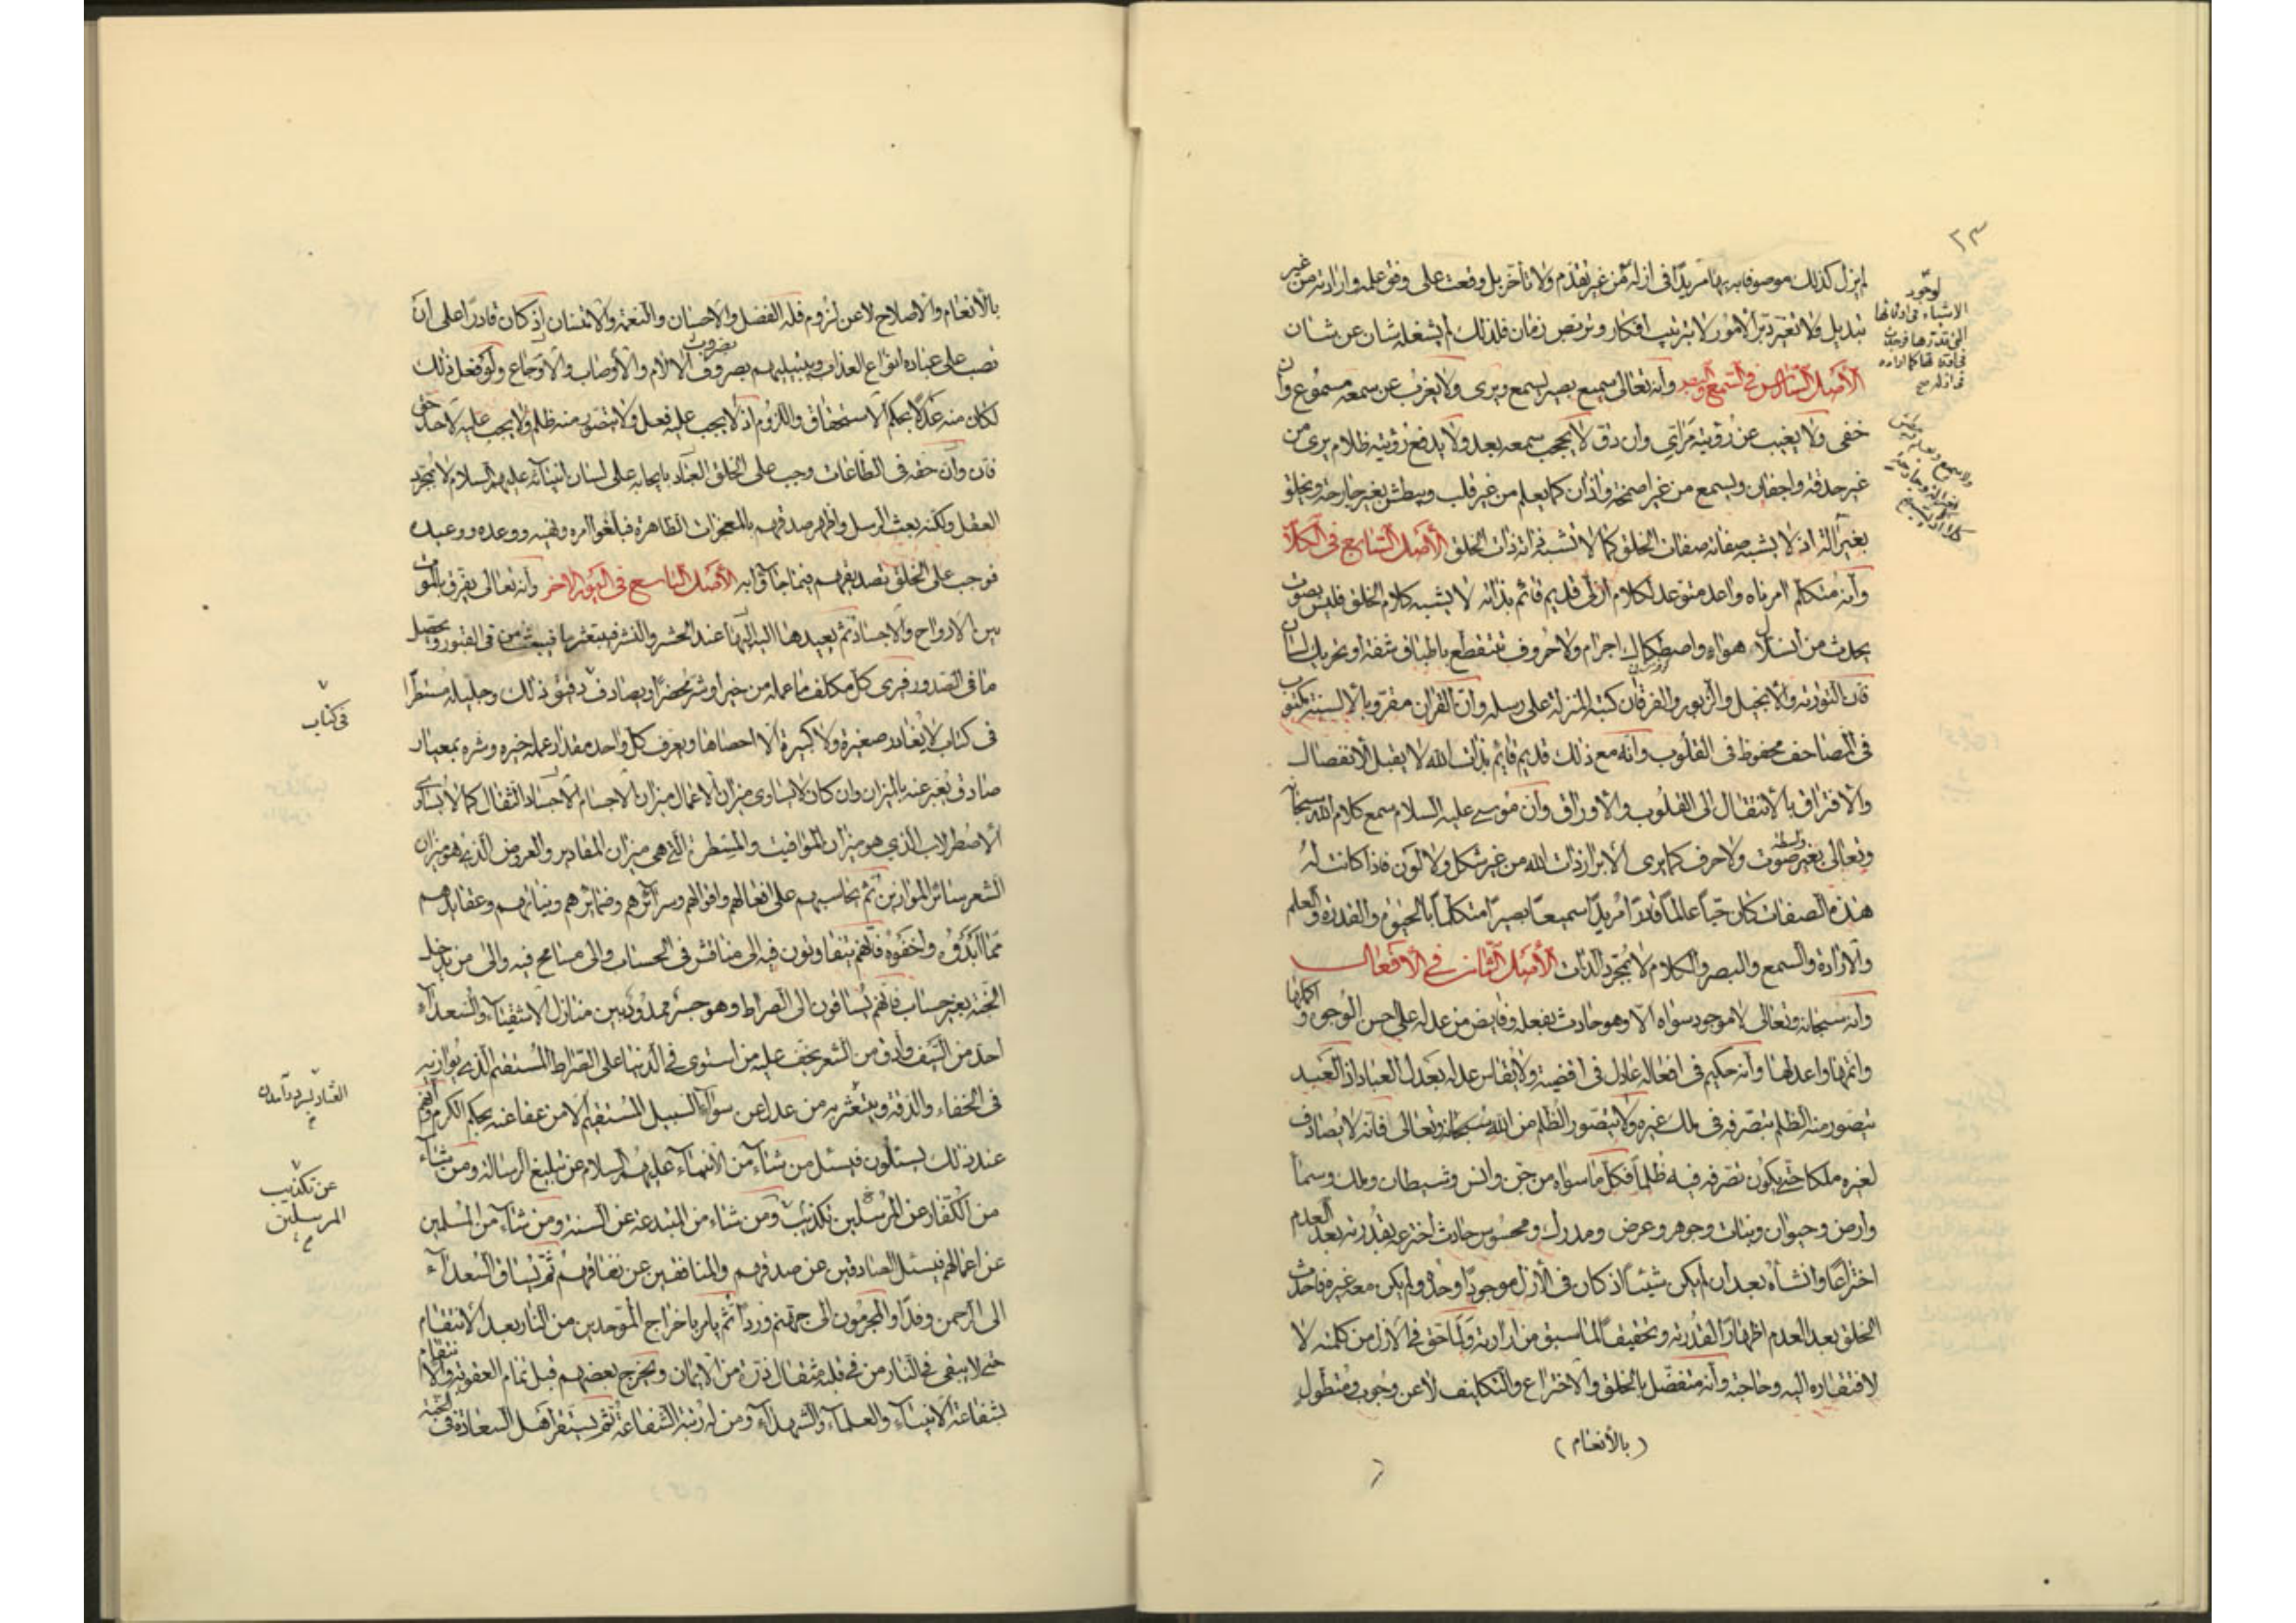 ٢٣
لم يزل كذلك موصوفا به بها مريدا فى ازله من غير تقدم ولا تأخر بل وقعت على وفق علمه وارادته من غير
تبديل ولا تغير دبر الامور لا بترتيب افكار وتربص زمان فلذلك لم يشغله شان عن شان
الأصل السادس في السمع والبصر وانه تعالى سميع بصير يسمع ويرى ولا يعزب عن سمعه مسموع وان
خفى ولا يغيب عن رؤيته مرئي وان دق لا يحجب سمعه بعد ولا يدفع رؤيته ظلام يرى من
غير حدقة واجفان ويسمع من غير اصمخة واذان كما يعلم من غير قلب ويبطش بغير جارحة ويخلق
بغير آلة اذ لا يشبه صفاته صفات الخلق كما لا تشبه ذاته ذات الخلق الأصل السابع في الكلام
وأنه متكلم امر ناه واعد متوعد بكلام ازلي قديم قائم بذاته لا يشبه كلام الخلق فليس بصوت
يحدث من انسلال هواء واصطكاك اجرام ولا حروف تتقطع باطباق شفة او تحريك لسان
وأن التورية والانجيل والزبور والفرقان كتبه المنزلة على رسله وان القرآن مقرو بالالسنة مكتوب
فى المصاحف محفوظ فى القلوب وانه مع ذلك قديم قايم بذات الله لا يقبل الانفصال
والافتراق بالانتقال الى القلوب والاوراق وأن موسى عليه السلام سمع كلام الله سبحانه
وتعالى بغير صوت ولا حرف كما يرى الابرار ذات الله من غير شكل ولا لون فاذا كانت له
هذه الصفات كان حيا عالما قادرا مريدا سميعا بصيرا متكلما بالحيوة والقدرة والعلم
والارادة والسمع والبصر والكلام لا بمجرد الذات الأصل الثامن في الأفعال
وانه سبحانه وتعالى لا موجود سواه الا وهو حادث بفعله وفايض من عدله على احسن الوجوه واكملها
واتمها واعدلها وانه حكيم فى افعاله عادل فى اقضيته ولا يقاس عدله بعدل العباد اذ العبد
يتصور منه الظلم بتصرفه فى ملك غيره ولا يتصور الظلم من الله سبحانه وتعالى فانه لا يصادف
لغيره ملكا حتى يكون تصرفه فيه ظلما فكل ما سواه من جن وانس وشيطان وملك وسماء
وارض وحيوان ونبات وجوهر وعرض ومدرك ومحسوس حادث اخترعه بقدرته بعد العدم
اختراعا وانشأه بعد ان لم يكن شيئا اذ كان فى الأزل موجودا وحده ولم يكن معه غيره فاحدث
الخلق بعد العدم اظهارا لقدرته وتحقيقا لما سبق من ارادته ولما حق في الازل من كلمته لا
لافتقاره اليه وحاجته وانه متفضل بالخلق والاختراع والتكليف لا عن وجوب ومتطول
(بالأنعام)
لوجود
الاشياء فى اوقاتها
التى قدرها فوجدت
فى اوقاتها كما اراده
فى ازله صح
بالأنعام والاصلاح لا عن لزوم فله الفضل والاحسان والنعمة والامتنان إذ كان قادرا على ان
نصب على عباده انواع العذاب ويبتليهم بصروف الالام والأوصاب والأوجاع ولو فعل ذلك
بضروب
لكان منه عدلا بحكم الاستحقاق واللزوم اذ لا يجب عليه فعل ولا يتصور منه ظلم ولا يجب عليه لاحد حق
فان وأن حقه فى الطاعات وجب على الخلق العباد بايجابه على لسان انبيائه عليهم السلام لا بمجرد
العقل ولكنه بعث الرسل واظهر صدقهم بالمعجزات الظاهرة فبلغوا امره ونهيه ووعده ووعيده
فوجب على الخلق تصديقهم فيما جاؤا به الأصل التاسع في اليوم الآخر وانه تعالى يفرق بالموت
بين الارواح والاجساد ثم يعيدها اليها عند الحشر والنشر فيبعث من فى القبور ويحصل
ما فى الصدور فيرى كل مكلف ما عمله من خير او شر محضرا ويصادف دقيق ذلك وجليله مسطرا
فى كتاب لا يغادر صغيرة ولا كبيرة الا احصاها ويعرف كل واحد مقدار عمله خيره وشره بمعيار
صادق يعبر عنه بالميزان وان كان لا يساوى ميزان الاعمال ميزان الاجسام الاجساد الثقال كما لا يساوى
الاصطرلاب الذي هو ميزان المواقيت والمسطرة التي هى ميزان المقادير والعروض الذي هو ميزان
الشعر سائر الموازين ثم يحاسبهم على افعالهم واقوالهم وسرائرهم وضمائرهم ونياتهم وعقايدهم
مما ابدوه واخفوه فانهم يتفاوتون فيه الى مناقش فى الحساب والى مسامح فيه والى من يدخل
الجنة بغير حساب فانهم يساقون الى الصراط وهو جسر ممدود بين منازل الاشقياء والسعداء
احد من السيف وأدق من الشعر يخف عليه من استوى في الدنيا على الصراط المستقيم الذي يوازنه
فى الخفاء والدقة ويتعثر به من عدل عن سواء السبيل المستقيم الا من عفا عنه بحكم الكرم وانهم
عند ذلك يسئلون فيسئل من شاء من الأنبياء عليهم السلام عن تبليغ الرسالة ومن شاء
من الكفار عن المرسلين تكذيب ومن شاء من المبتدعة عن السنة ومن شاء من المسلمين
عن اعمالهم فيسئل الصادقين عن صدقهم والمنافقين عن نفاقهم ثم يساق السعداء
الى الرحمن وفدا والمجرمون الى جهنم وردا ثم يامر باخراج الموحدين من النار بعد الانتقام
حتى لا يبقى في النار من في قلبه مثقال ذرة من الايمان ويخرج بعضهم قبل تمام العقوبة والانتقام
بشفاعة الانبياء والعلماء والشهداء ومن له رتبة الشفاعة ثم يستقر اهل السعادة فى الجنة
فى كتاب
عن تكذيب
المرسلين